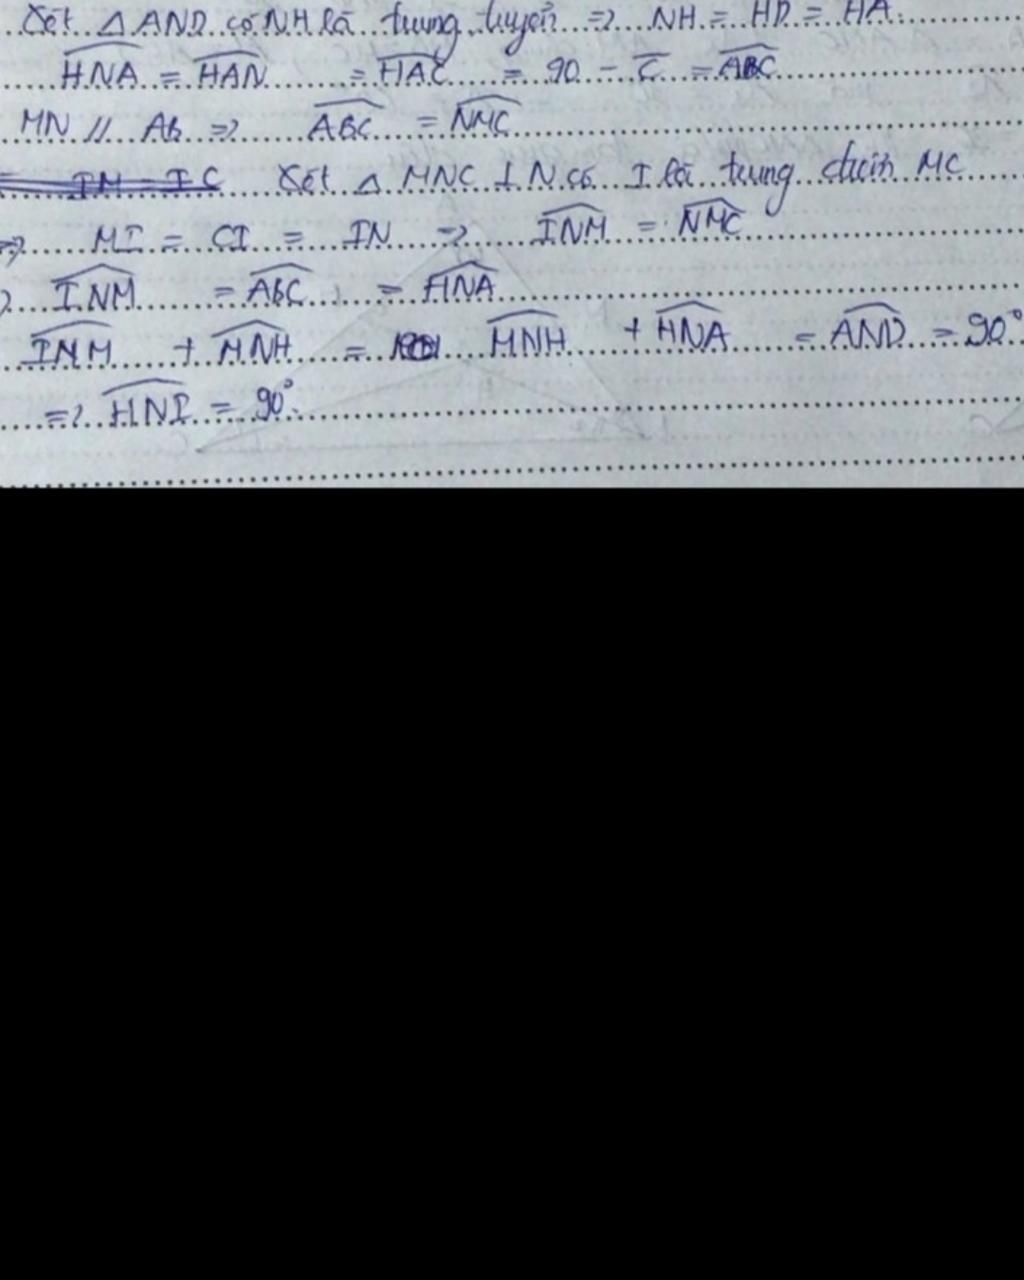 Xét △ AND có NH là trung tuyến => NH = HD = HA.
HNA = HAN = HAC = 90 - C = ABC
MN // AB => ABC = NMC
IM = IC Xét △ MNC ⊥ N có I là trung điểm MC
=> MI = CI = IN => INM = NMC
INM = ABC = HNA
INM + MNH = MNH + HNA = AND = 90°
=> HNI = 90°.